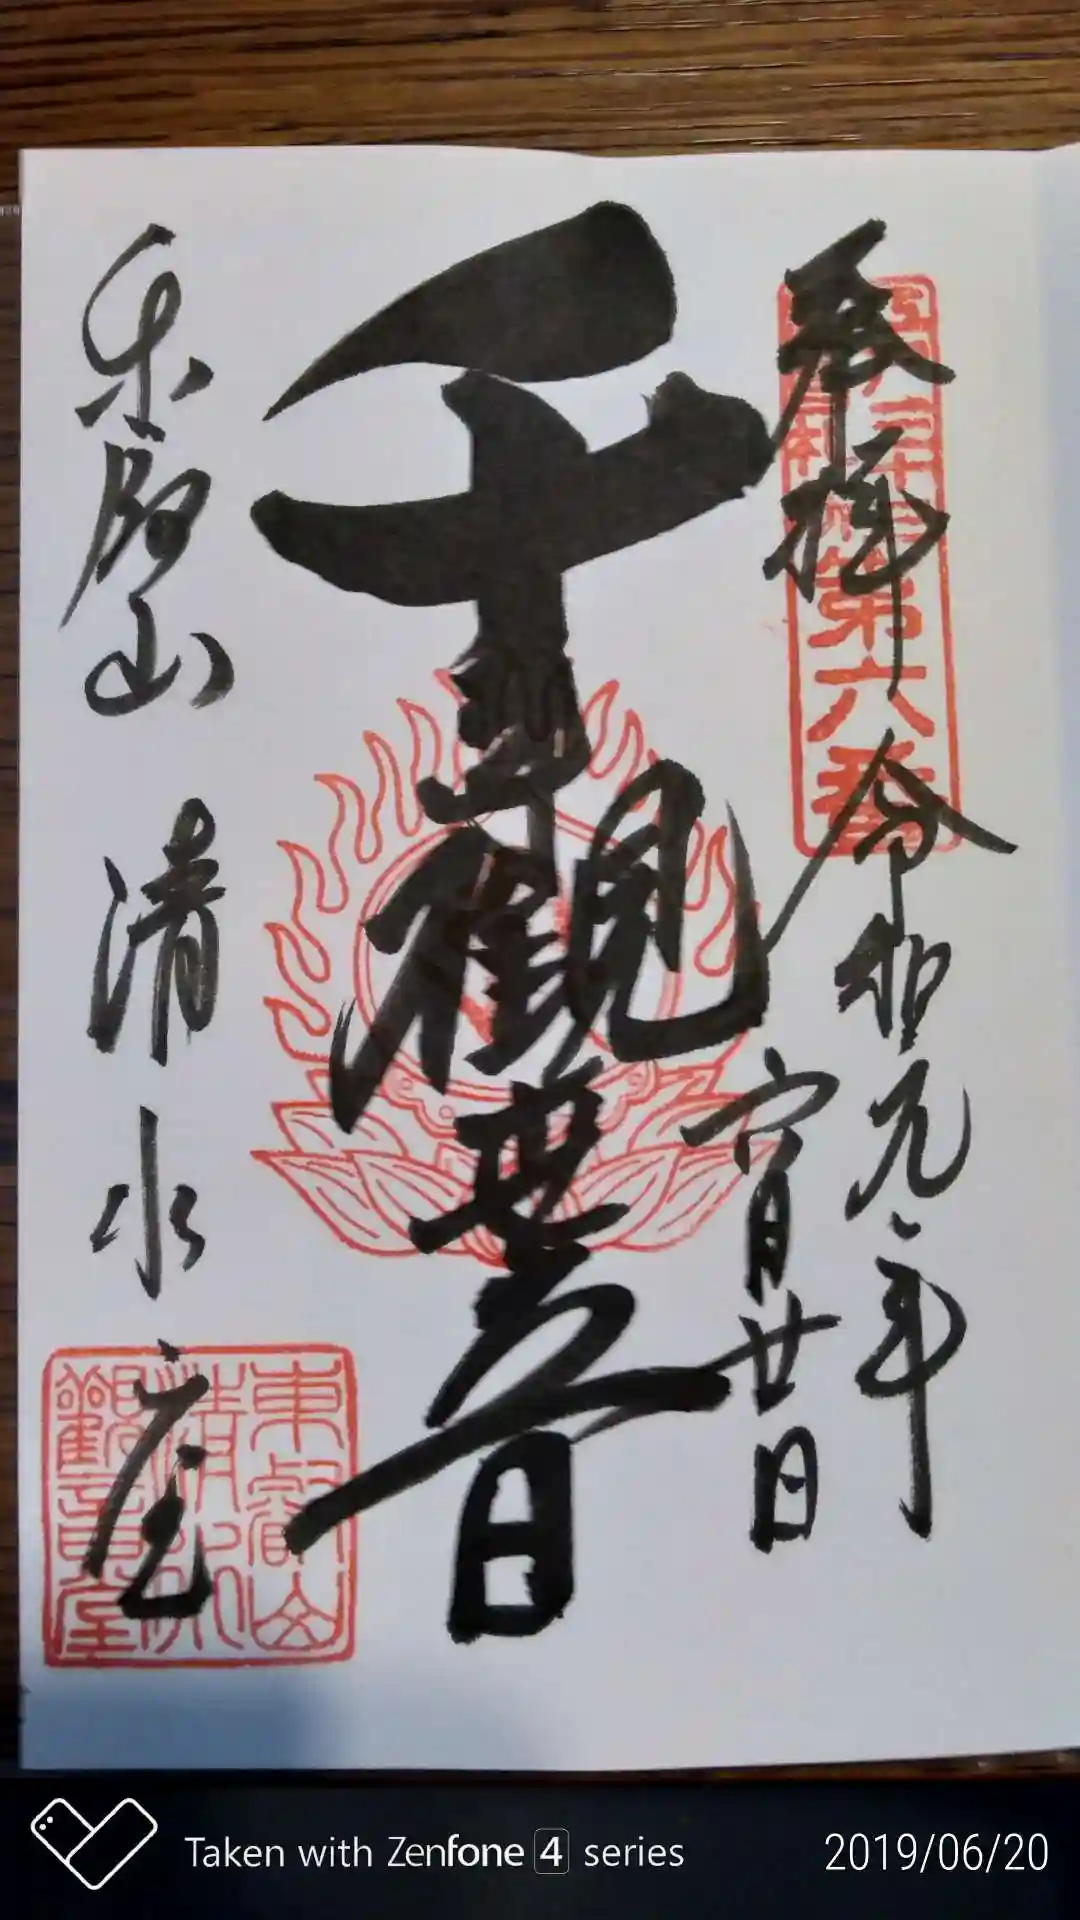 奉拝
令和元年
六月廿日
千手観世音
東叡山
清水堂
第六番
東叡山
清水
観音堂
Taken with Zenfone 4 series
2019/06/20